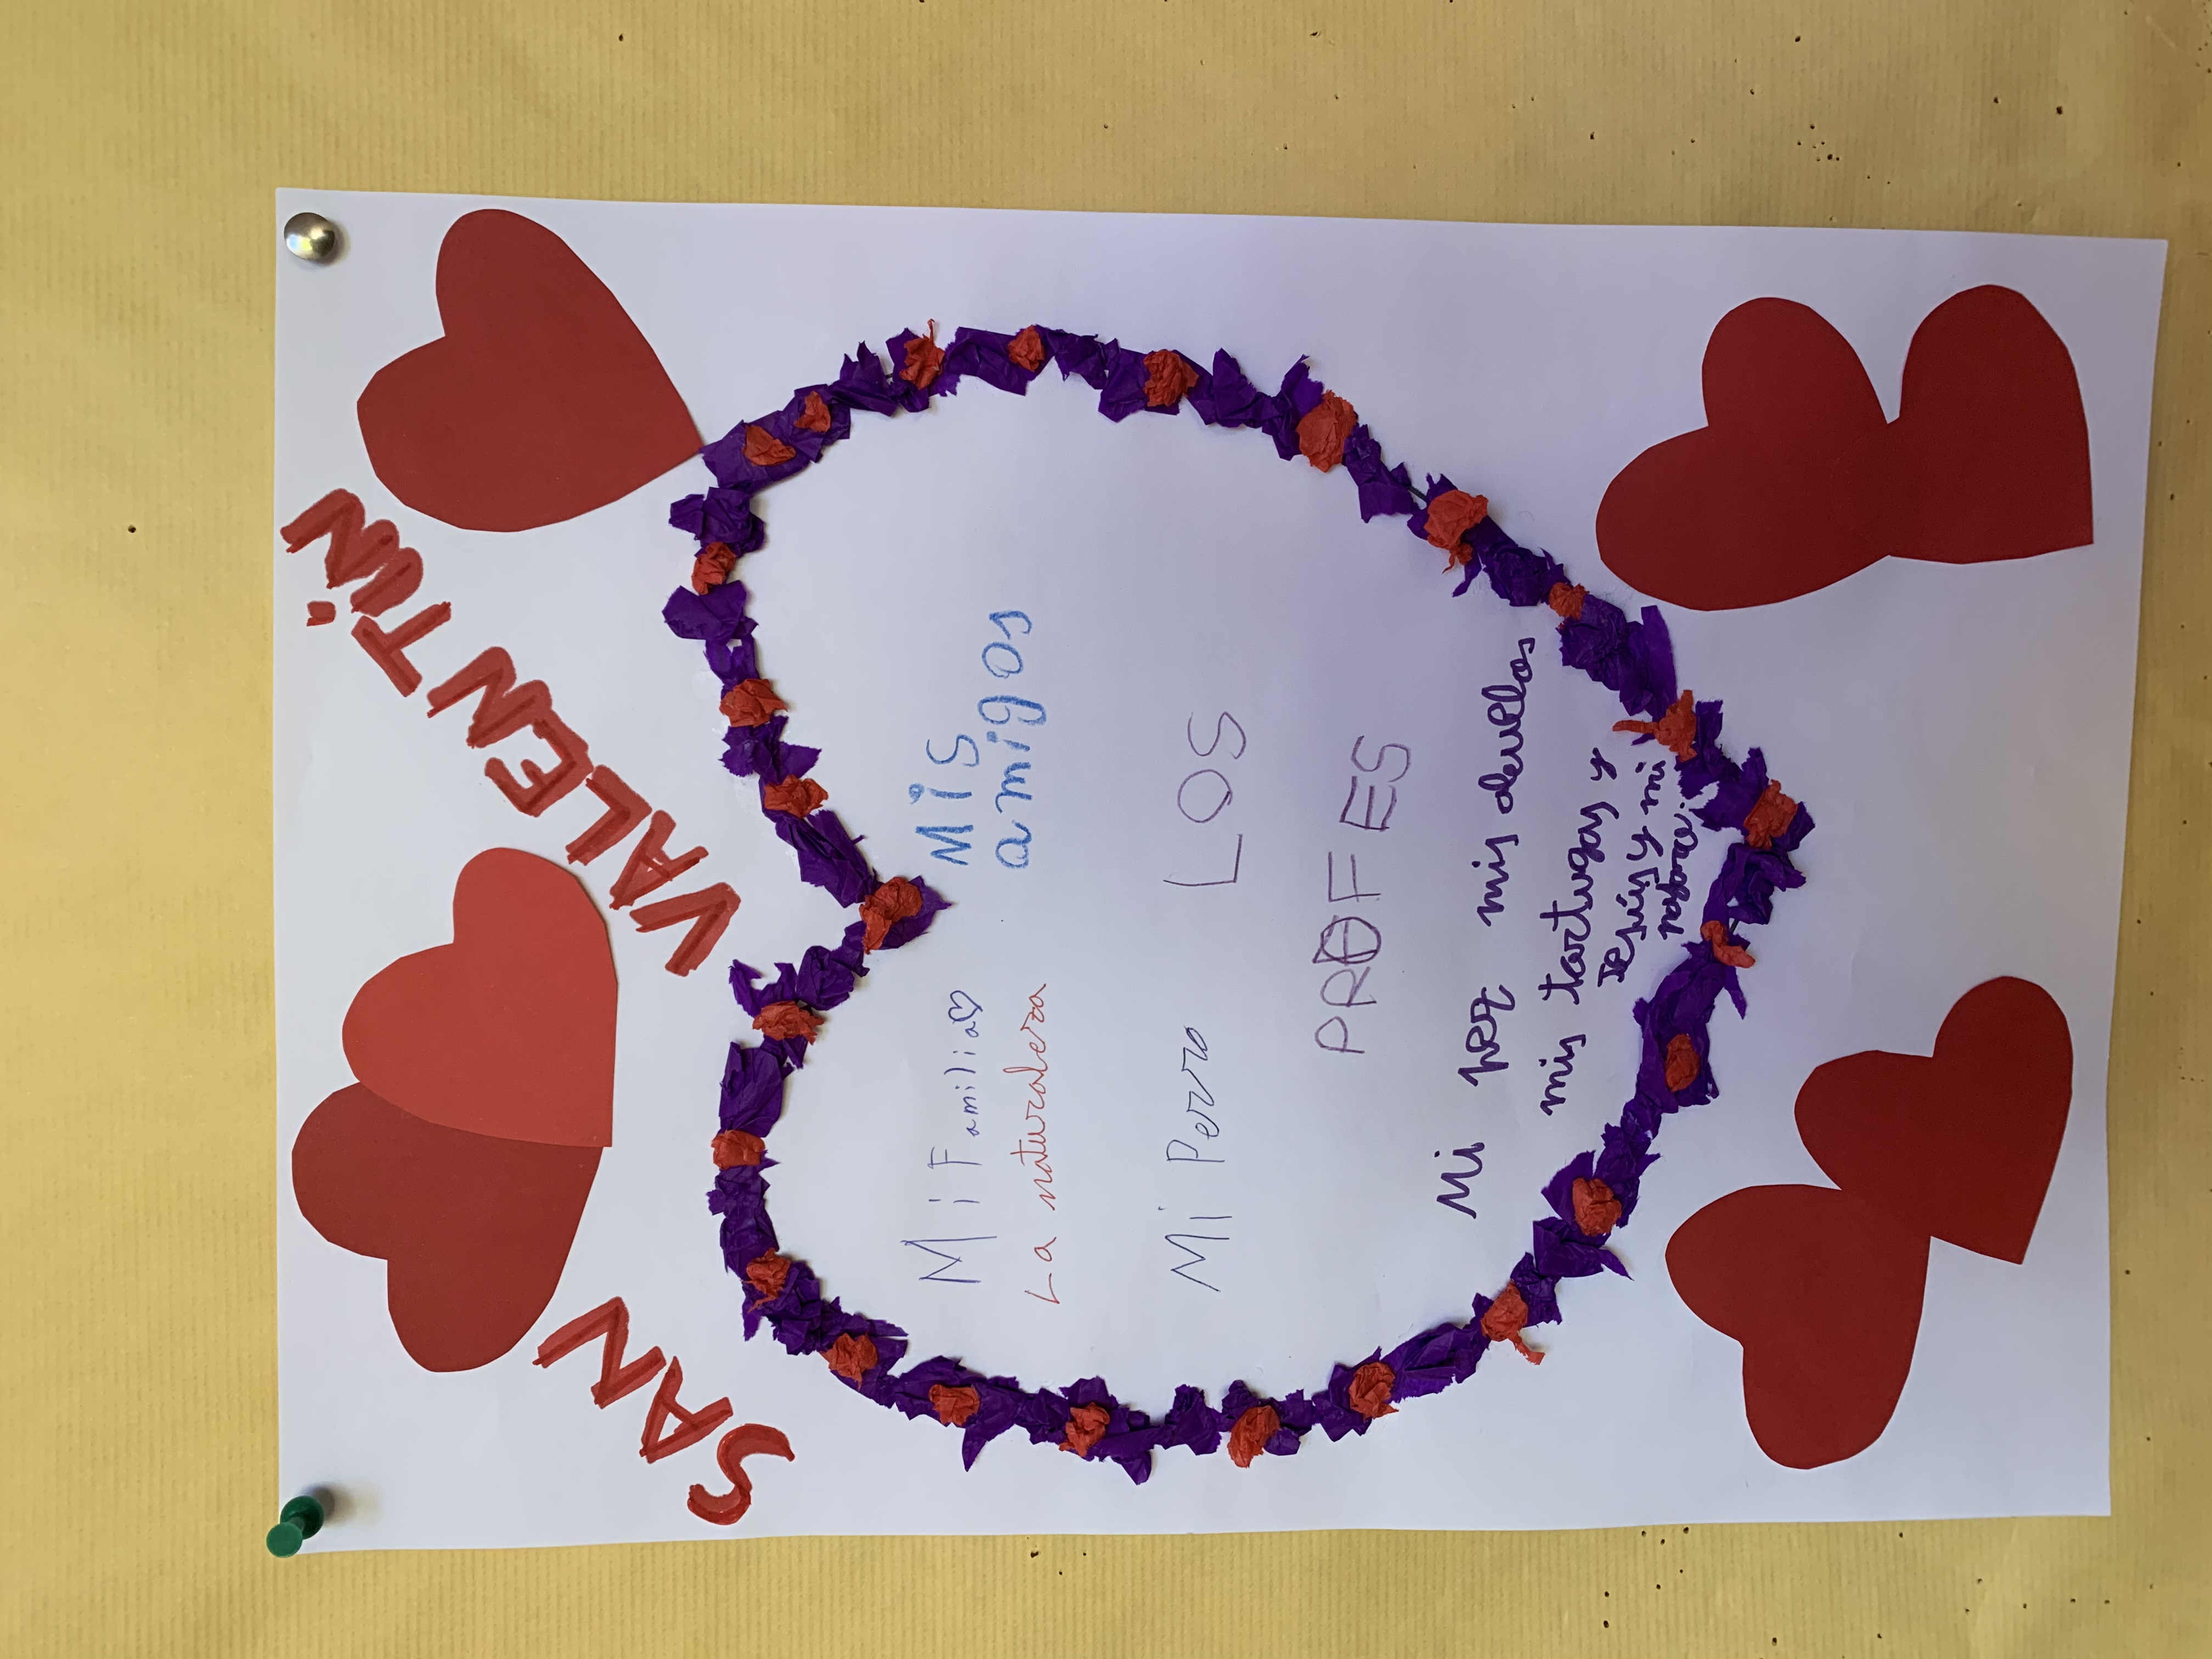 SAN VALENTÍN
Mi Familia♡
Mis
amigos
La naturaleza
Mi Perro
LOS
PROFES
Mi pez mis abuelos
mis tortugas y
Jesús y mi